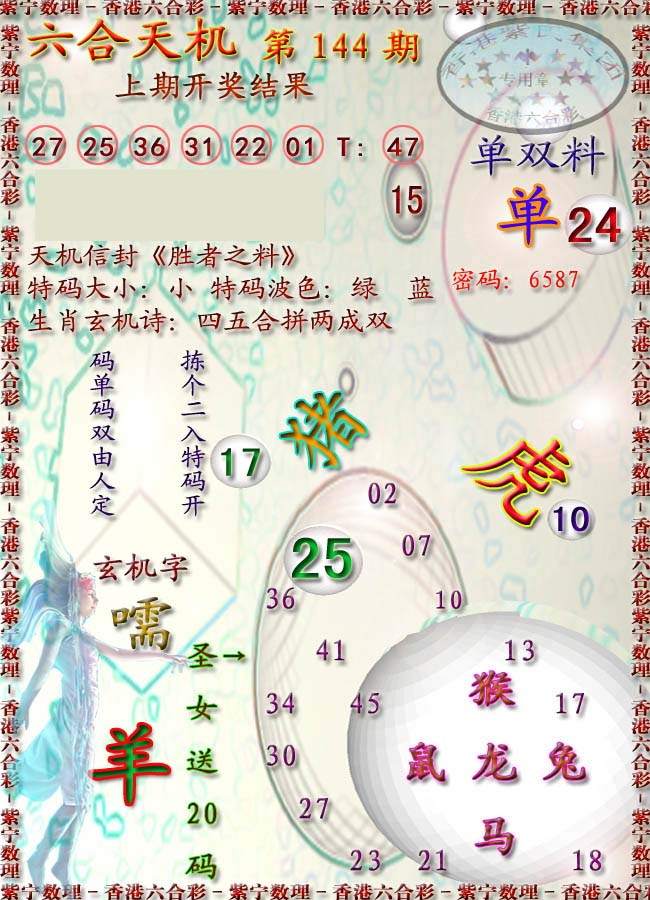 紫宁数理－香港六合彩－紫宁数理－香港六合彩－紫宁数理－香港六合彩－紫宁数理
六合天机 第 144 期
香港紫宁集团
专用章
香港六合彩
上期开奖结果
27 25 36 31 22 01 T: 47
单双料
15
单 24
天机信封《胜者之料》
特码大小：小 特码波色：绿 蓝
密码：6587
生肖玄机诗：四五合拼两成双
拣个二入特码开
码单码双由人定
17
猪
虎
10
02
25
07
玄机字
嚅
36
10
圣女送20码
→
41
13
猴
34
45
17
羊
鼠 龙 兔
30
27
马
23
21
18
紫宁数理－香港六合彩－紫宁数理－香港六合彩－紫宁数理－香港六合彩－紫宁数理